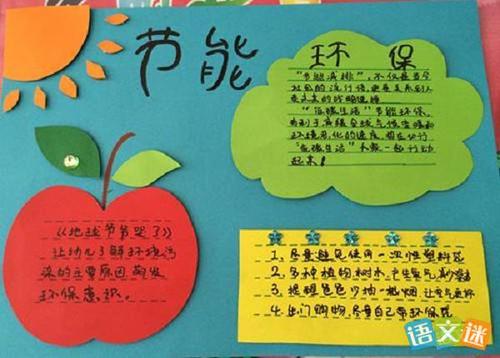 节能 环保
"节能减排",不仅是当今
社会的流行语,更是关系到人
类未来的战略选择
"低碳生活"节能环保,
有利于减缓全球气候变暖和
环境恶化的速度
"低碳生活"一起行动
起来!
《地球爷爷哭了》
让幼儿了解环境污
染的主要原因,萌发
环保意识。
1、尽量避免使用一次性塑料袋
2、多种植物树木,产生氧气
3、提醒爸爸少抽一根烟,让空气更好
4、出门购物,尽量自己带环保袋
语文迷